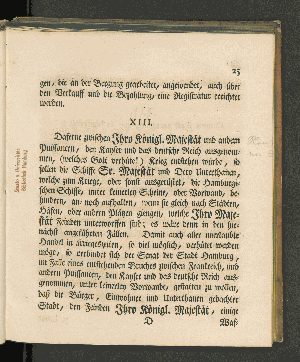 25
gen, die an der Bergung gearbeitet, angewendet, auch über
den Verkauff und die Bezahlung, eine Registratur errichtet
werden.
XIII.
Daferne zwischen Ihro Königl. Majestät und andern
Puissancen, den Kayser und das deutsche Reich ausgenom-
men, (welches Gott verhüte!) Krieg entstehen würde, so
sollen die Schiffe Sr. Majestät und Dero Unterthanen,
welche zum Kriege, oder sonst ausgerüstet, die Hamburgi-
schen Schiffe, unter keinerley Scheine, oder Vorwand, be-
hindern, an- noch aufhalten, wenn sie gleich nach Städten,
Häfen, oder andern Plätzen giengen, welche Ihro Maje-
stät Feinden unterworffen sind; es wäre denn in den hie-
nächst angeführten Fällen. Damit auch aller unerlaubte
Handel in Kriegeszeiten, so viel möglich, verhütet werden
möge, so verbindet sich der Senat der Stadt Hamburg,
im Falle eines entstehenden Bruches zwischen Frankreich, und
andern Puissancen, den Kayser und das deutsche Reich aus-
genommen, unter keinerley Vorwande, gestatten zu wollen,
daß die Bürger, Einwohner und Unterthanen gedachter
Stadt, den Feinden Ihro Königl. Majestät, einige
D Waf-